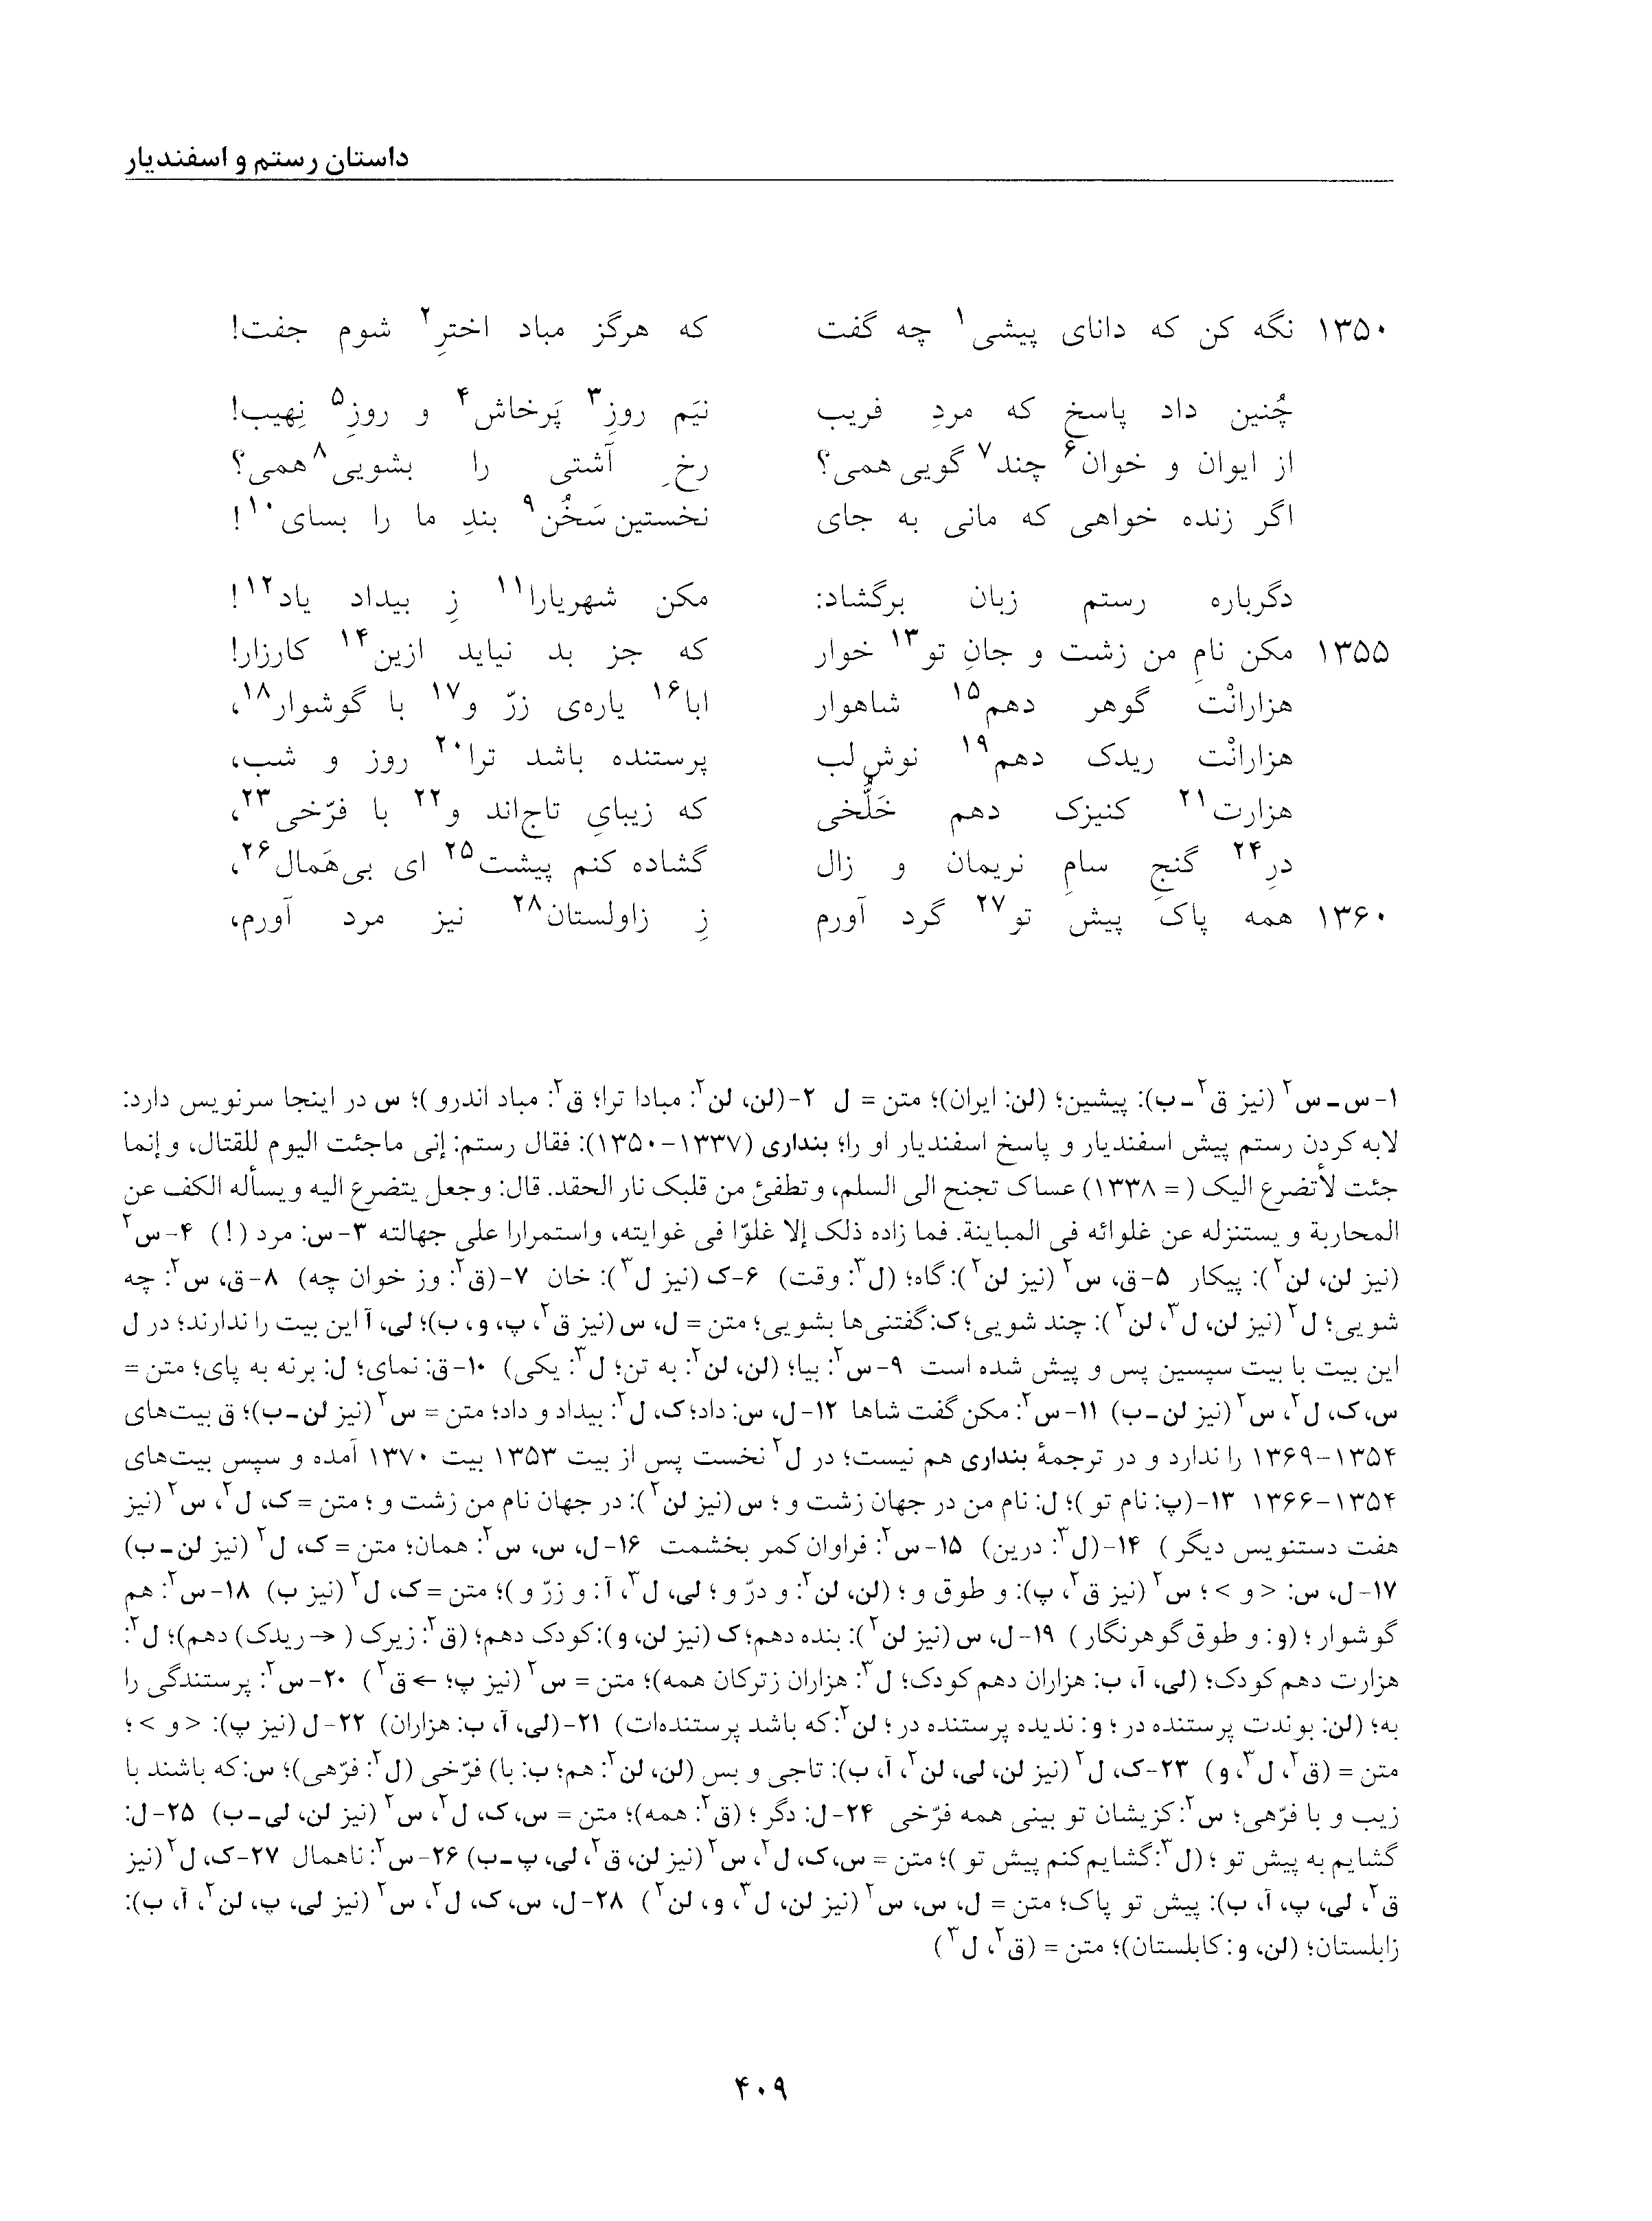 داستان رستم و اسفندیار
۱۳۵۰ نگه کن که دانای پیشی۱ چه گفت که هرگز مباد اخترِ۲ شوم جفت!
چُنین داد پاسخ که مردِ فریب نیَم روزِ۳ پَرخاش۴ و روزِ۵ نِهیب!
از ایوان و خوان۶ چند۷ گویی همی؟ رخِ آشتی را بشویی۸ همی؟
اگر زنده خواهی که مانی به جای نخستین سَخُن۹ بندِ ما را بسای۱۰!
دگرباره رستم زبان برگشاد: مکن شهریارا۱۱ زِ بیداد یاد۱۲!
۱۳۵۵ مکن نامِ من زشت و جانِ تو۱۳ خوار که جز بد نیاید ازین۱۴ کارزار!
هزارانْت گوهر دهم۱۵ شاهوار ابا۱۶ یاره‌ی زرّ و۱۷ با گوشوار۱۸،
هزارانْت ریدک دهم۱۹ نوش‌لب پرستنده باشد ترا۲۰ روز و شب،
هزارت۲۱ کنیزک دهم خَلُّخی که زیبایِ تاج‌اند و۲۲ با فرّخی۲۳،
درِ۲۴ گنجِ سامِ نریمان و زال گشاده کنم پیشت۲۵ ای بی‌هَمال۲۶،
۱۳۶۰ همه پاک پیش تو۲۷ گرد آورم زِ زاولستان۲۸ نیز مرد آورم،
۱-س-س۲ (نیز ق۲-ب): پیشین؛ (لن: ایران)؛ متن = ل ۲-(لن، لن۲: مبادا ترا؛ ق۲: مباد اندرو)؛ س در اینجا سرنویس دارد:
لابه کردن رستم پیش اسفندیار و پاسخ اسفندیار او را؛ بنداری (۱۳۳۷-۱۳۵۰): فقال رستم: إنی ماجئت الیوم للقتال، و إنما
جئت لأتضرع الیک (= ۱۳۳۸) عساک تجنح الی السلم، و تطفئ من قلبک نار الحقد. قال: و جعل یتضرع الیه و یسأله الکف عن
المحاربة و یستنزله عن غلوائه فی المباینة. فما زاده ذلک إلا غلوّا فی غوایته، واستمرارا علی جهالته ۳-س: مرد (!) ۴-س۲
(نیز لن، لن۲): پیکار ۵-ق، س۲ (نیز لن۲): گاه؛ (ل۳: وقت) ۶-ک (نیز ل۳): خان ۷-(ق۲: وز خوان چه) ۸-ق، س۲: چه
شویی؛ ل۲ (نیز لن، ل۳، لن۲): چند شویی؛ ک: گفتنی‌ها بشویی؛ متن = ل، س (نیز ق۲، پ، و، ب)؛ لی، آ این بیت را ندارند؛ در ل
این بیت با بیت سپسین پس و پیش شده است ۹-س۲: بیا؛ (لن، لن۲: به تن؛ ل۳: یکی) ۱۰-ق: نمای؛ ل: برنه به پای؛ متن =
س، ک، ل۲، س۲ (نیز لن-ب) ۱۱-س۲: مکن گفت شاها ۱۲-ل، س: داد؛ ک، ل۲: بیداد و داد؛ متن = س۲ (نیز لن-ب)؛ ق بیت‌های
۱۳۵۴-۱۳۶۹ را ندارد و در ترجمهٔ بنداری هم نیست؛ در ل۲ نخست پس از بیت ۱۳۵۳ بیت ۱۳۷۰ آمده و سپس بیت‌های
۱۳۵۴-۱۳۶۶ ۱۳-(پ: نام تو)؛ ل: نام من در جهان زشت و؛ س (نیز لن۲): در جهان نام من زشت و؛ متن = ک، ل۲، س۲ (نیز
هفت دستنویس دیگر) ۱۴-(ل۳: درین) ۱۵-س۲: فراوان کمر بخشمت ۱۶-ل، س، س۲: همان؛ متن = ک، ل۲ (نیز لن-ب)
۱۷-ل، س: <و>؛ س۲ (نیز ق۲، پ): و طوق و؛ (لن، لن۲: و درّ و؛ لی، ل۳، آ: و زرّ و)؛ متن = ک، ل۲ (نیز ب) ۱۸-س۲: هم
گوشوار؛ (و: و طوق گوهرنگار) ۱۹-ل، س (نیز لن۲): بنده دهم؛ ک (نیز لن، و): کودک دهم؛ (ق۲: زیرک (→ ریدک) دهم)؛ ل۲:
هزارت دهم کودک؛ (لی، آ، ب: هزاران دهم کودک؛ ل۳: هزاران زترکان همه)؛ متن = س۲ (نیز پ؛ ← ق۲) ۲۰-س۲: پرستندگی را
به؛ (لن: بوندت پرستنده در؛ و: ندیده پرستنده در؛ لن۲: که باشد پرستنده‌ات) ۲۱-(لی، آ، ب: هزاران) ۲۲-ل (نیز پ): <و>؛
متن = (ق۲، ل۳، و) ۲۳-ک، ل۲ (نیز لن، لی، لن۲، آ، ب): تاجی و بس (لن، لن۲: هم؛ ب: با) فرّخی (ل۲: فرّهی)؛ س: که باشند با
زیب و با فرّهی؛ س۲: کزیشان تو بینی همه فرّخی ۲۴-ل: دگر؛ (ق۲: همه)؛ متن = س، ک، ل۲، س۲ (نیز لن، لی-ب) ۲۵-ل:
گشایم به پیش تو؛ (ل۳: گشایم کنم پیش تو)؛ متن = س، ک، ل۲، س۲ (نیز لن، ق۲، لی، پ-ب) ۲۶-س۲: ناهمال ۲۷-ک، ل۲ (نیز
ق۲، لی، پ، آ، ب): پیش تو پاک؛ متن = ل، س، س۲ (نیز لن، ل۳، و، لن۲) ۲۸-ل، س، ک، ل۲، س۲ (نیز لی، پ، لن۲، آ، ب):
زابلستان؛ (لن، و: کابلستان)؛ متن = (ق۲، ل۳)
۴۰۹